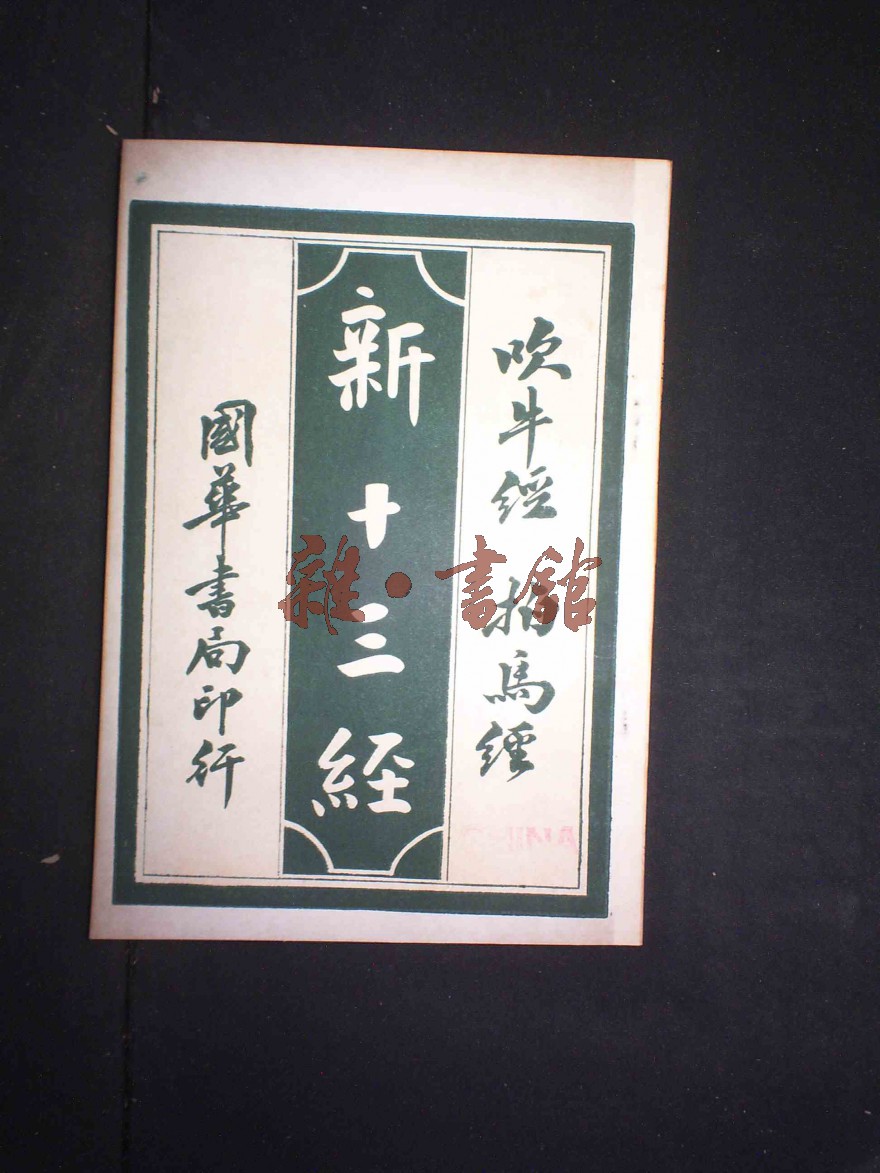 吹牛經 拍馬經
新十三經
國華書局印行
雜·書館